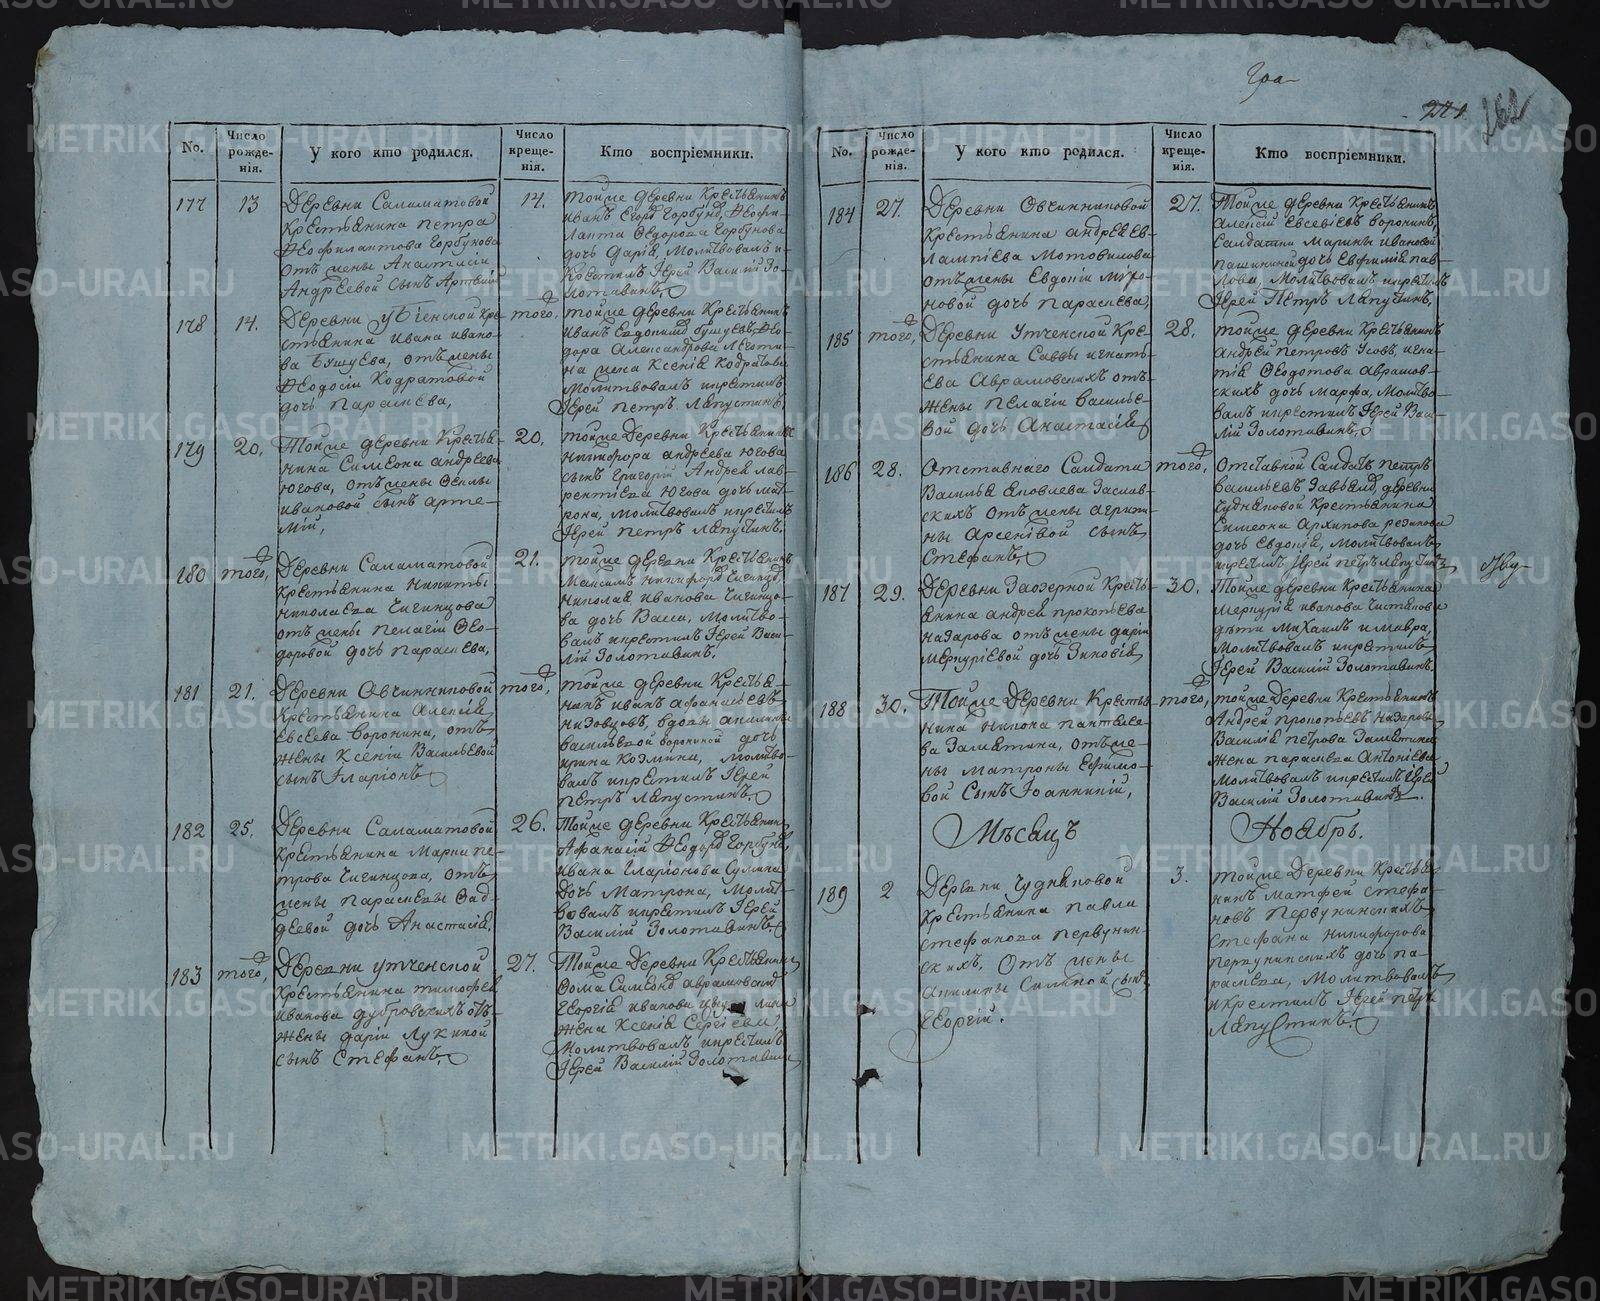 Гра-
271
262
No.
Число рожденія.
У кого кто родился.
Число крещенія.
Кто воспріемники.
177
13
Деревни Саламатовой
крестьянина Петра
Феофилактова Горбунова
отъ жены Анастасіи
Андреевой сынъ Артемій
14.
тойже деревни крестьянинъ
Иванъ Егоръ Горбуновъ, Феофи-
лакта Феодорова Горбунова
дочь Дарія, Молитвовалъ и
крестилъ Іерей Василій Зо-
лотавинъ.
178
14.
Деревни Убіенской кре-
стьянина Ивана Ивано-
ва Бушуева, отъ жены
Феодосіи Кодратовой
дочь Параскева,
того,
тойже деревни крестьянинъ
Иванъ Евдокимъ Бушуевъ, Фео-
дора Александрова
на жена Ксенія Кодратова
молитвовалъ и крестилъ
Іерей Петръ Ляпустинъ
179
20.
Тойже деревни крестья-
нина Симеона Андреева
Югова, отъ жены Феклы
Ивановой сынъ Арте-
мій,
20.
тойже деревни крестьянина
Никифора Андреева Югова
сынъ Григорій Андрея Лав-
рентіева Югова дочь Мат-
рона, молитвовалъ и крестилъ
Іерей Петръ Ляпустинъ.
180
того,
Деревни Саламатовой
крестьянина Никиты
Николаева Чигинцова
отъ жены Пелагіи Фео-
доровой дочь Параскева,
21.
тойже деревни крестьянинъ
Максимъ Никифоръ Чигинцовъ,
Николая Иванова Чигинцо-
ва дочь Васса, Молитво-
валъ и крестилъ Іерей Васи-
лій Золотавинъ.
181
21.
Деревни Овчинниковой
крестьянина Алексія
Евсеева Воронина, отъ
жены Ксеніи Васильевой
сынъ Іларіонъ
того,
тойже деревни крестья-
нинъ Иванъ Афанасіевъ
Низовцовъ, вдовы Акилины
Васильевой Ворониной дочь
Ирина Козмина, молитво-
валъ и крестилъ Іерей
Петръ Ляпустинъ.
182
25.
Деревни Саламатовой
крестьянина Марки Пе-
трова Чигинцова, отъ
жены Параскевы Фад-
деевой дочь Анастасія,
26.
Тойже деревни крестьянинъ
Афанасій Феодоръ Горбуновъ,
Ивана Іларіонова Сулина
дочь Матрона, Молит-
вовалъ и крестилъ Іерей
Василій Золотавинъ.
183
того,
Деревни Утченской
крестьянина Тимофея
Иванова Дубровскихъ отъ
жены Даріи Лукиной
сынъ Стефанъ.
27.
Тойже Деревни крестьянинъ
Фома Симеонъ Аврамовыхъ
Георгія Иванова
жена Ксенія Сергіева,
Молитвовалъ и крестилъ
Іерей Василій Золотавинъ
No.
Число рожденія.
У кого кто родился.
Число крещенія.
Кто воспріемники.
184
27.
Деревни Овчинниковой
крестьянина Андрея Ев-
лампіева Мотовилова
отъ жены Евдокіи Миро-
новой дочь Параскева,
27.
Тойже деревни крестьянинъ
Алексій Евсевіевъ Воронинъ,
Салдатки Марины Ивановой
Пашкиной дочь Евфимія Пав-
лова, Молитвовалъ и крестилъ
Іерей Петръ Ляпустинъ,
185
того,
Деревни Утченской кре-
стьянина Саввы Игнать-
ева Аврамовскихъ отъ
жены Пелагіи Василье-
вой дочь Анастасія
28.
тойже деревни крестьянинъ
Андрей Петровъ Усовъ, Игна-
тія Феодотова Аврамов-
скихъ дочь Марфа, Молитво-
валъ и крестилъ Іерей Васи-
лій Золотавинъ,
186
28.
Отставнаго Салдата
Василья Яковлева Заслав-
скихъ отъ жены Агрипи-
ны Арсеніевой сынъ
Стефанъ,
того,
Отставной Салдатъ Петръ
Васильевъ Завьяловъ, деревни
Чудняковой крестьянина
Симеона Архипова Резинова
дочь Евдокія, Молитвовалъ
и крестилъ Іерей Петръ Ляпустинъ,
187
29.
Деревни Заозерной кресть-
янина Андрея Прокопьева
Назарова отъ жены Даріи
Меркуріевой дочь Зиновія
30.
Тойже деревни крестьянина
Меркурія Иванова Чистякова
дети Михаилъ и Мавра,
Молитвовалъ и крестилъ
Іерей Василій Золотавинъ.
188
30.
Тойже Деревни кресть-
янина Никона Пантелее-
ва Замятина, отъ же-
ны Матроны Ефимо-
вой Сынъ Іоанникій,
того,
тойже деревни крестьянинъ
Андрей Прокопьевъ Назаровъ
Василія Петрова Замятина
жена Параскева Антоніева
Молитвовалъ и крестилъ Іерей
Василій Золотавинъ.
Мѣсяцъ
Ноябрь.
189
2
Деревни Чудняковой
крестьянина Павла
Стефанова Первунин-
скихъ, Отъ жены
Акилины Силиной сынъ
Георгій.
3.
тойже Деревни крестья-
нинъ Матфей Стефа-
новъ Первунинскихъ
Стефана Никифорова
Первунинскихъ дочь Па-
раскева, Молитвовалъ
и крестилъ Іерей Петръ
Ляпустинъ.